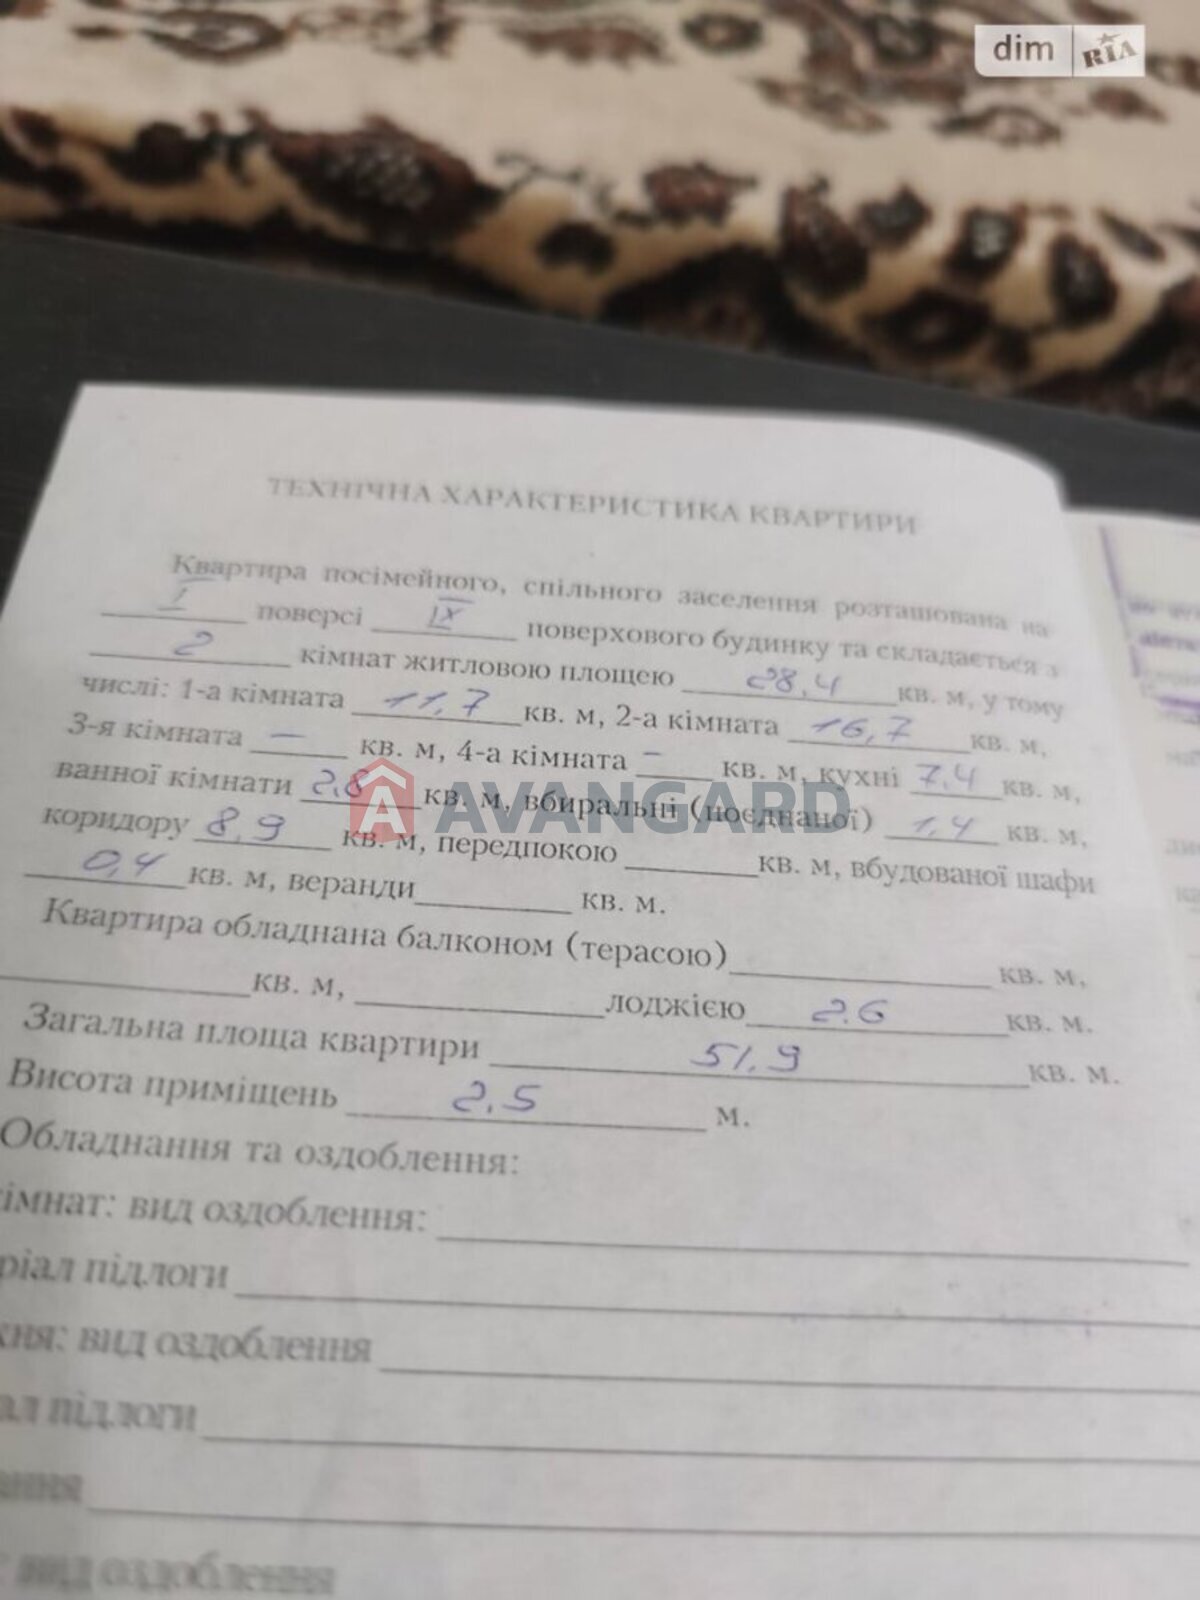 dim RIA
ТЕХНІЧНА ХАРАКТЕРИСТИКА КВАРТИРИ
Квартира посімейного, спільного заселення розташована на
I поверсі IX поверхового будинку та складається з
2 кімнат житловою площею 28,4 кв. м, у тому
числі: 1-а кімната 11,7 кв. м, 2-а кімната 16,7 кв. м,
3-я кімната – кв. м, 4-а кімната – кв. м, кухні 7,4 кв. м,
ванної кімнати 2,8 кв. м, вбиральні (поєднаної) 1,4 кв. м,
AVANGARD
коридору 8,9 кв. м, передпокою кв. м, вбудованої шафи
0,4 кв. м, веранди кв. м.
Квартира обладнана балконом (терасою) кв. м,
кв. м, лоджією 2.6 кв. м.
Загальна площа квартири 51.9 кв. м.
Висота приміщень 2.5 м.
Обладнання та оздоблення:
імнат: вид оздоблення:
ріал підлоги
хня: вид оздоблення
ал підлоги
ання
: вид оздоблення